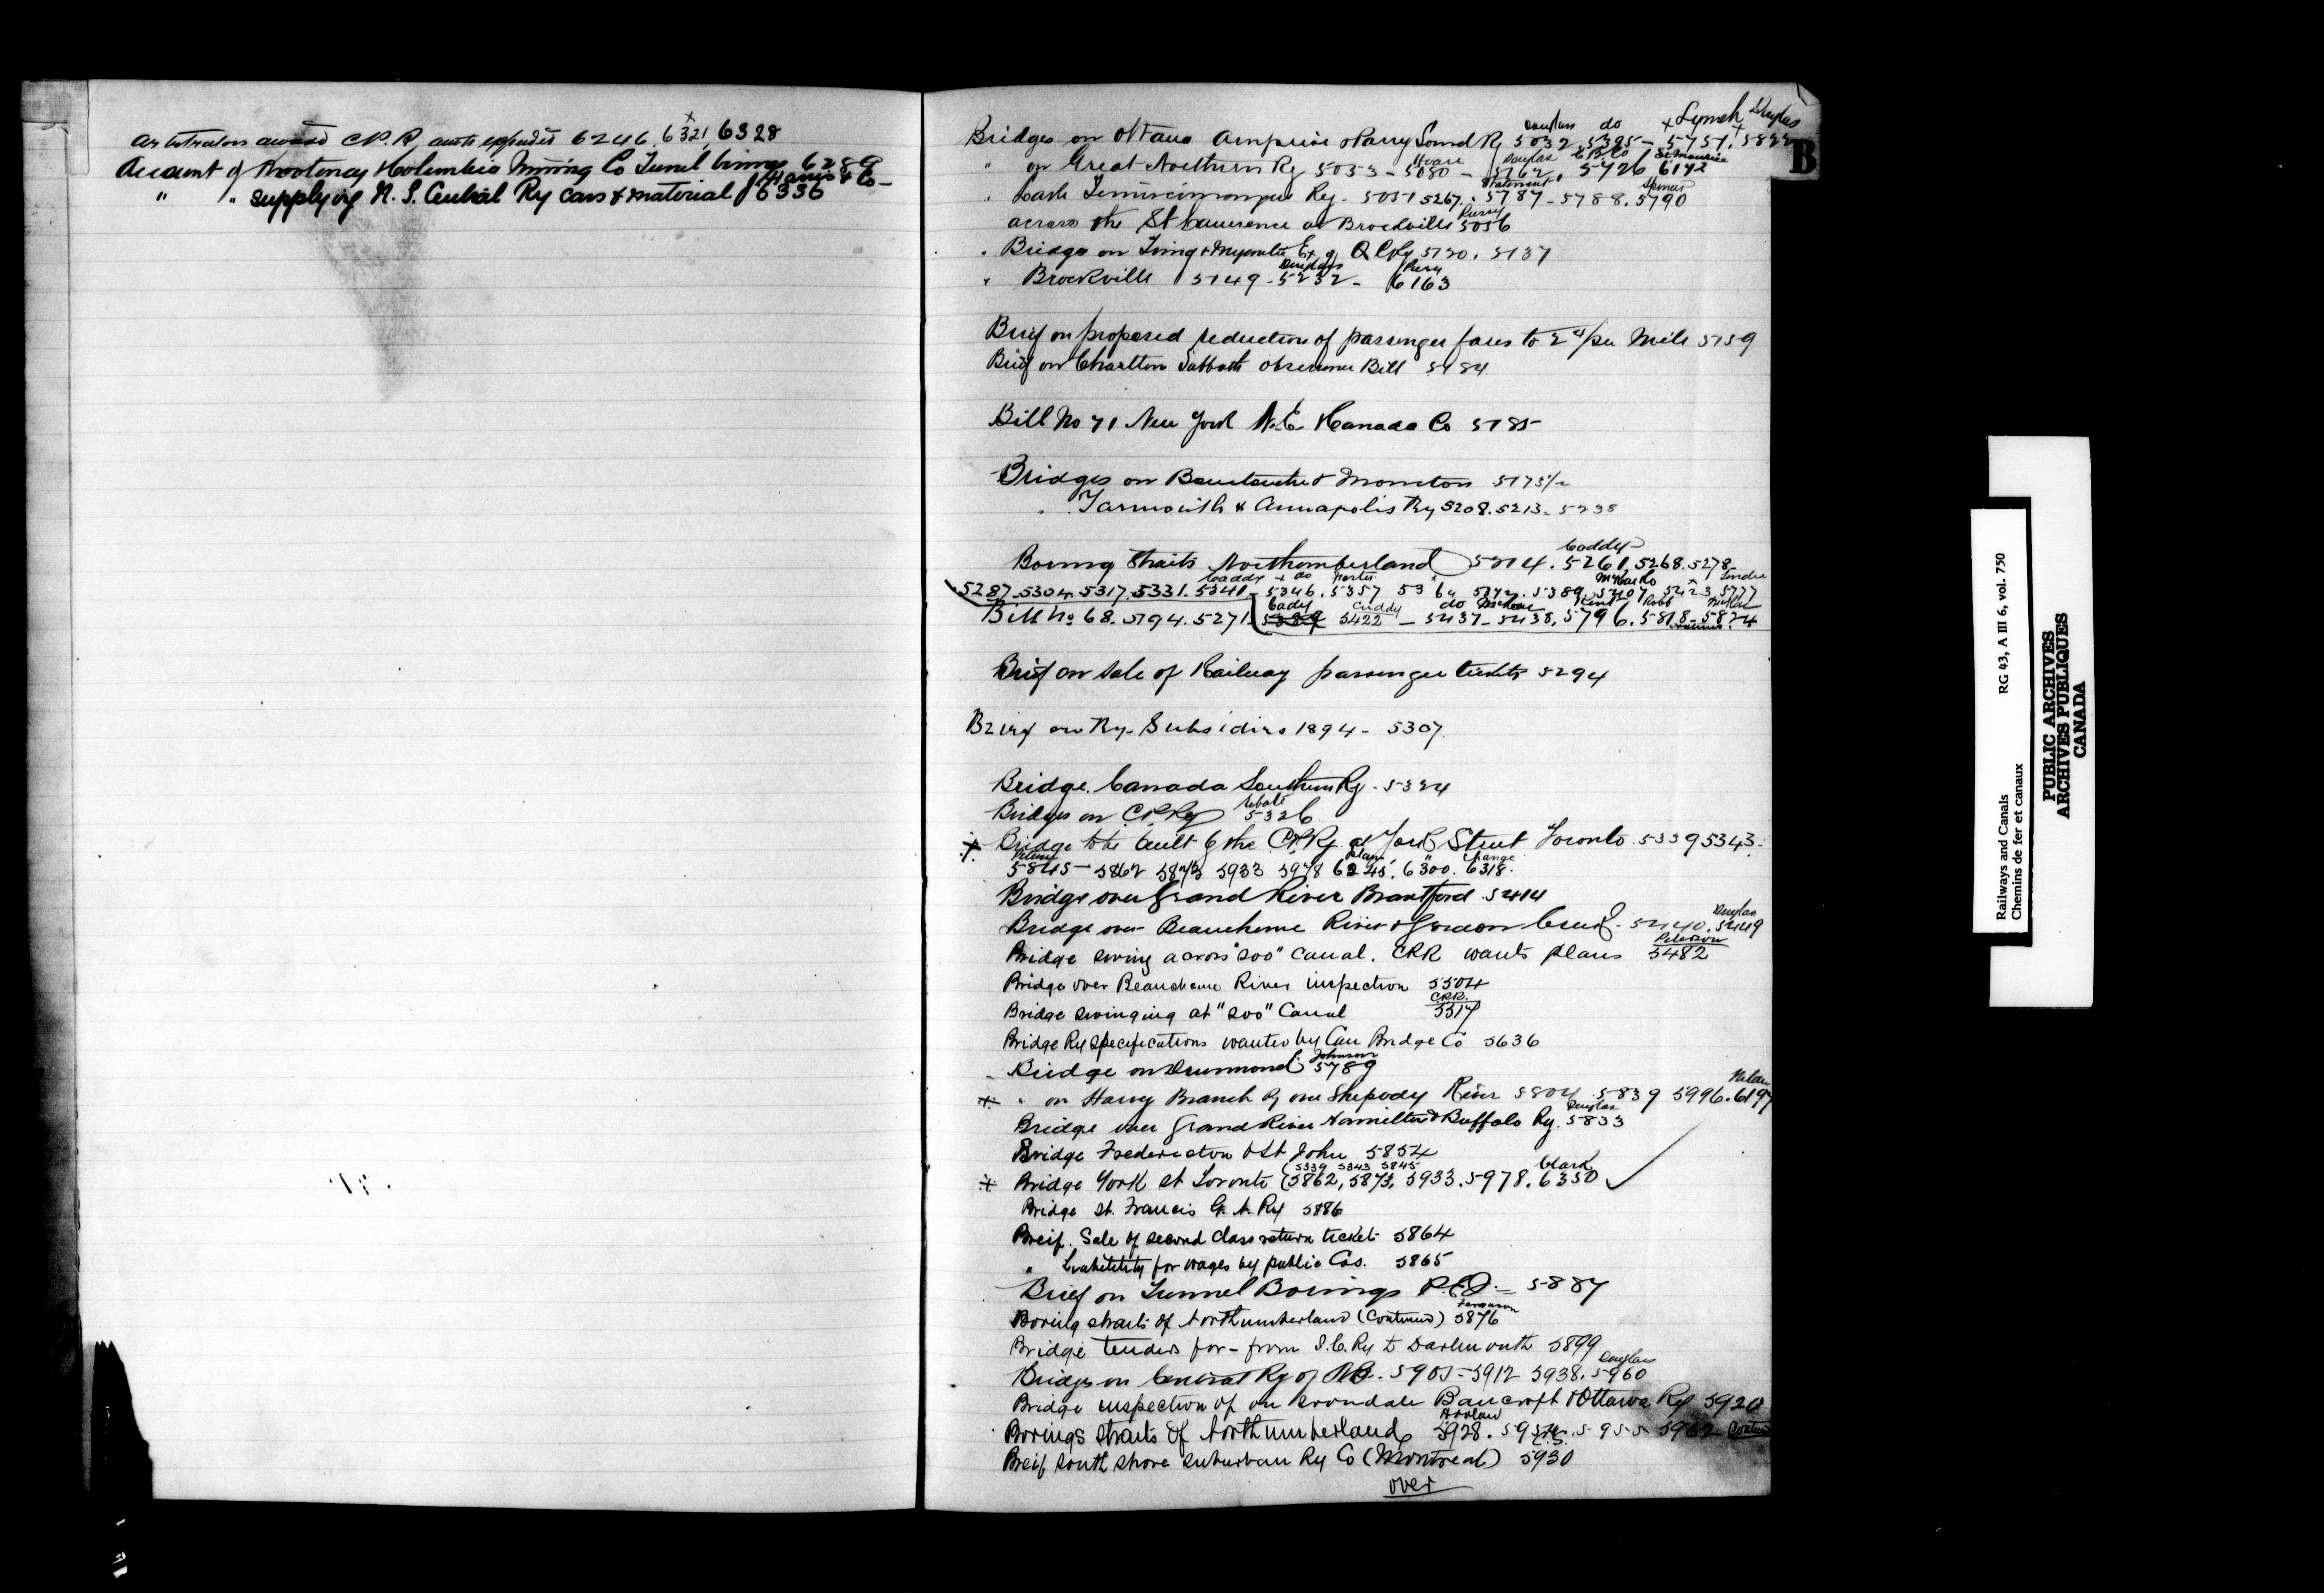 Arbitration award C.P.R. amts expended 6246. 6321, 6328
Account of Kootenay & Columbia Mining Co Tunel 6289
" " supplying N. S. Central Ry Cars & material Harris & Co 6336
B
Bridges on Ottawa Arnprior & Parry Sound Ry Douglas 5032 do 5395 - x Lynch 5757, + Douglas 5822
" on Great Northern Ry 5053 - 5080 - Douglas 5162. 5726 St Maurice 6142
" Lake Temiscamingue Ry - 5051 5267. Statement 5787 - 5788. 5790
across the St Lawrence at Brockville 5056
" Bridges on Ex of Q C Ry 5120. 5137
" Brockville 5149 - Douglas 5232 - 6163
Brief on proposed reduction of passenger fares to 2 cts/per Mile 5159
Brief on Charlton Sabbath observance Bill 5184
Bill No 71 New York N. E. & Canada Co 5185
Bridges on Bouctouche & Moncton 5175 1/2
" Yarmouth & Annapolis Ry 5208. 5213 - 5238
Boring Straits Northumberland 5214. Caddy 5261, 5268. 5278 -
5287 - 5304. 5317. 5331. 5341 - Caddy 5346. + do 5357 5389. 5407. 5423 5777
Bill No 68. 5194. 5271. Caddy 5422 - do 5437 - 5438. 5796. Kent 5818 - Robb 5824
Brief on sale of Railway passenger tickets 5294
Brief on Ry - Subsidies 1894 - 5307.
Bridge. Canada Southern Ry - 5324
Bridges on C.P.Ry 5326
+ Bridge to be built by the C.P.Ry. at York Street Toronto 5339 5343 -
5845 - 5862 5873 5933 5978 Plan 6245. " 6300. Change 6318.
Bridge over Grand River Brantford 5414
Bridge over Beaucheme River & Gordon Creek - 5440. Douglas 5449
Bridge swing across "Soo" Canal. CPR wants plans Peterson 5482
Bridge over Beaucheme River inspection 5504
Bridge swinging at "Soo" Canal C.P.R. 5517
Bridge Ry specifications wanted by Can Bridge Co 5636
- Bridge on Drummond C. Johnson 5789
+ " on Harvey Branch Ry over Shepody River 5804 5839 5996. 6197
Bridge over Grand River Hamilton & Buffalo Ry. Douglas 5833
Bridge Fredericton & St John 5854
+ Bridge York St Toronto (5339 5343 5845 5862, 5873, 5933. 5978. Clark 6350
Bridge St. Francis G. N. Ry 5886
Breif. Sale of second class return ticket 5864
" Liability for wages by public Cos. 5865
Brief on Tunnel Borings P.E.I. - 5887
Boring straits of Northumberland (Continued) Ferguson 5876
Bridge tenders for - from I.C.Ry to Dartmouth 5899
Bridges on Central Ry of N.B. - 5905 - 5912 5938. Douglas 5960
Bridge inspection of on Irondale Bancroft & Ottawa Ry 5920
Borings straits of Northumberland 5928. 5954. 5955 5962 Continued
Breif South Shore Suburban Ry Co (Montreal) 5930
over
Railways and Canals RG 43, A III 6, vol. 750
Chemins de fer et canaux
PUBLIC ARCHIVES
ARCHIVES PUBLIQUES
CANADA